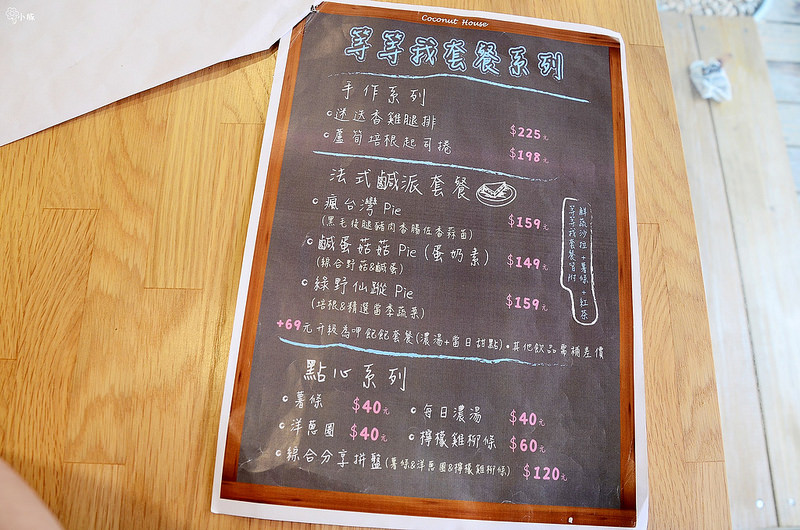 小腹
Coconut House
等等我套餐系列
手作系列
迷迭香雞腿排 $225元
蘆筍培根起司捲 $198元
法式鹹派套餐
瘋台灣 Pie $159元
(黑毛後腿豬肉香腸佐香蒜苗)
鹹蛋菇菇 Pie (蛋奶素) $149元
(綜合野菇&鹹蛋)
綠野仙蹤 Pie $159元
(培根&精選當季蔬菜)
等等我套餐皆附
鮮蔬沙拉+薯條+紅茶
+69元升級為呷飽飽套餐(濃湯+當日甜點)。其他飲品需補差價
點心系列
薯條 $40元 每日濃湯 $40元
洋蔥圈 $40元 檸檬雞柳條 $60元
綜合分享拼盤(薯條&洋蔥圈&檸檬雞柳條) $120元